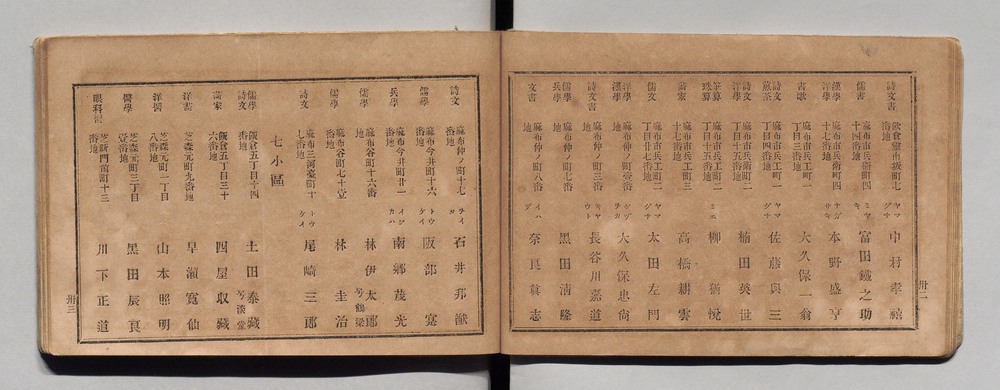 詩文書 飯倉 町七番地 ヤマ 中村孝禧
儒書 麻布市兵衛町四十四番地 ミヤキ 富田鐵之助
漢學 洋學 麻布市兵衛町四十七番地 ナガサキ 本野盛亨
書歌 麻布市兵工町一丁目三番地 大久保一翁
詩文 煎茶 麻布市兵工町一丁目四番地 ヤマグチ 佐藤與三
詩文 洋學 麻布市兵衛町二丁目十五番地 楠田英世
筆算 珠算 麻布市兵工町二丁目十五番地 ミエ 柳 悅
書家 麻布市兵工町三十七番地 高橋耕雲
儒文 麻布市兵工町二丁目廿七番地 ヤマグチ 太田左門
洋學 漢學 麻布仲ノ町壹番地 シヅヲカ 大久保忠尙
詩文書 麻布仲ノ町三番地 キヤウト 長谷川嘉道
儒學 兵學 麻布仲ノ町七番地 黒田淸隆
文書 麻布仲ノ町八番地 イハデ 奈良眞志
卅二
詩文 麻布仲ノ町十七番地 石井邦猷
儒學 麻布今井町十六番地 トウケイ 阪部寔
兵學 麻布今井町廿一番地 南鄕茂光
儒學 麻布谷町十六番地 林伊太郎 号鶴梁
儒學 麻布谷町七十壹番地 林圭治
詩文 麻布三河臺町十七番地 トウケイ 尾崎三郎
七小區
儒學 詩文 飯倉五丁目十四番地 土田泰藏 号淡堂
書家 飯倉五丁目三十六番地 四屋収藏
洋書 芝森元町九番地 早瀬寛仙
洋醫 芝森元町一丁目八番地 山本照明
醫學 芝森元町三丁目壹番地 黒田辰良
眼科醫 芝新門前町十三番地 川下正道
卅三